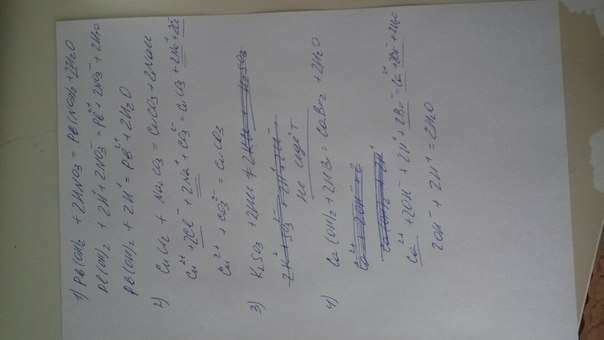 1) Pb(OH)2 + 2HNO3 = Pb(NO3)2 + 2H2O
Pb(OH)2 + 2H+ + 2NO3- = Pb2+ + 2NO3- + 2H2O
Pb(OH)2 + 2H+ = Pb2+ + 2H2O
2) CuCl2 + Na2CO3 = CuCO3 + 2NaCl
Cu2+ + 2Cl- + 2Na+ + CO32- = CuCO3 + 2Na+ + 2Cl-
Cu2+ + CO32- = CuCO3
3) K2SO3 +
не идёт
4) Ca(OH)2 + 2HBr = CaBr2 + 2H2O
Ca2+ + 2OH- + 2H+ + 2Br- = Ca2+ + 2Br- + 2H2O
2OH- + 2H+ = 2H2O